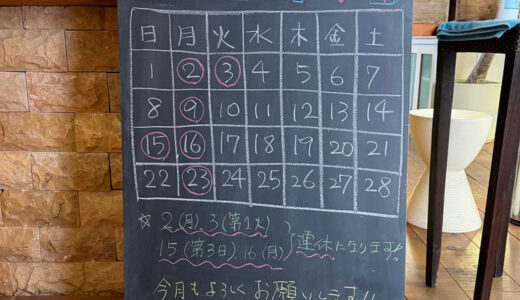 日 月 火 水 木 金 土
1 2 3 4 5 6 7
8 9 10 11 12 13 14
15 16 17 18 19 20 21
22 23 24 25 26 27 28
☆ 2(月) 3(第1火)
15(第3日). 16(月) }連休になります!
今月もよろしくお願いします!!